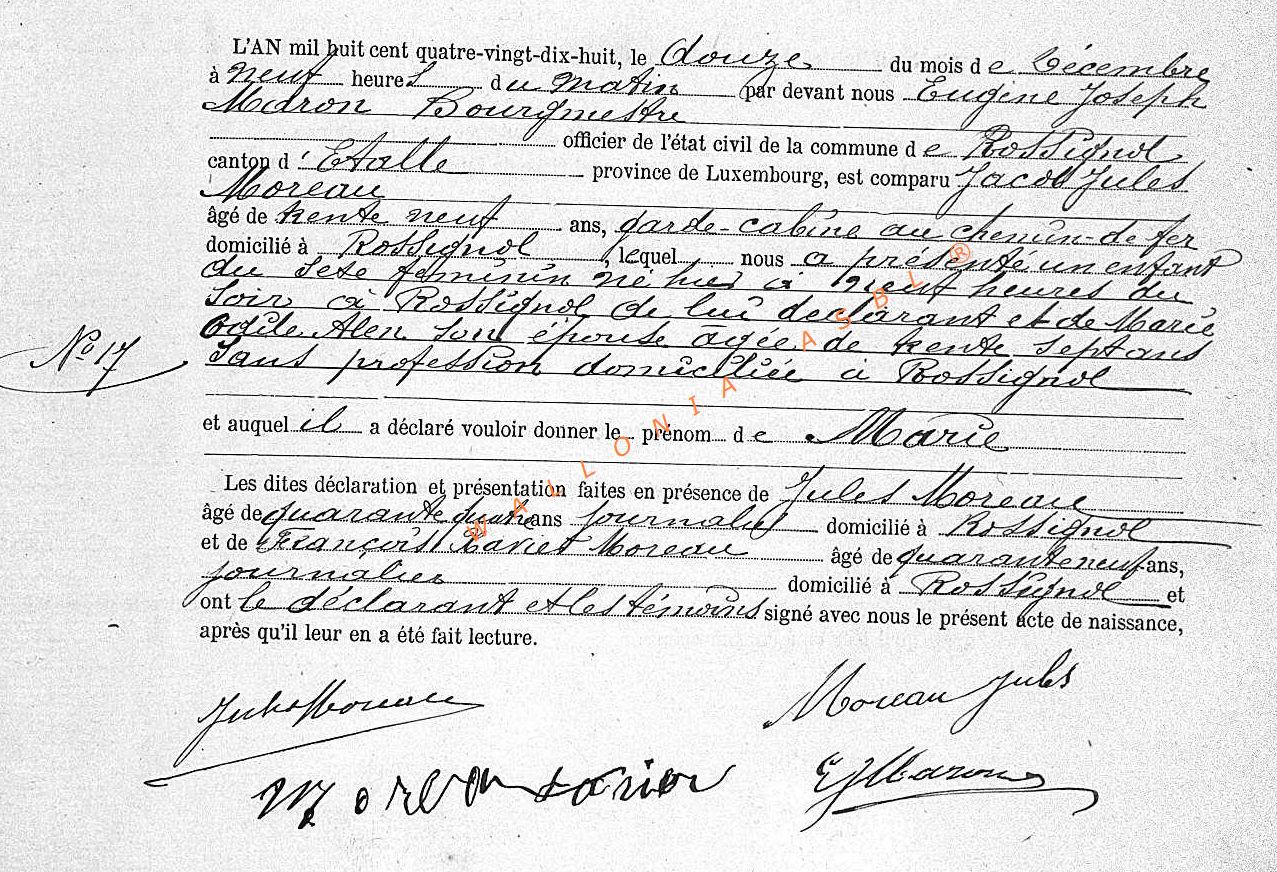 L'AN mil huit cent quatre-vingt-dix-huit, le douze du mois de Décembre
à neuf heures du matin par devant nous Eugène Joseph
Maron Bourgmestre
officier de l'état civil de la commune de Rossignol
canton d'Etalle province de Luxembourg, est comparu Jacob Jules
Moreau
âgé de trente neuf ans, garde-cabine au chemin-de-fer
domicilié à Rossignol, lequel nous a présenté un enfant
du sexe féminin né hier à neuf heures du
soir à Rossignol de lui déclarant et de Marie
Odile Alen son épouse agée de trente sept ans
Sans profession domiciliée à Rossignol
No 17
et auquel il a déclaré vouloir donner le prénom de Marie
Les dites déclaration et présentation faites en présence de Jules Moreau
âgé de quarante quatre ans journalier domicilié à Rossignol
et de François Xavier Moreau âgé de quarante neuf ans,
journalier domicilié à Rossignol et
ont le déclarant et les témoins signé avec nous le présent acte de naissance,
après qu'il leur en a été fait lecture.
Jules Moreau
Moreau Jules
Moreau Xavier
EJMaron
WALLONIA ASBL ®